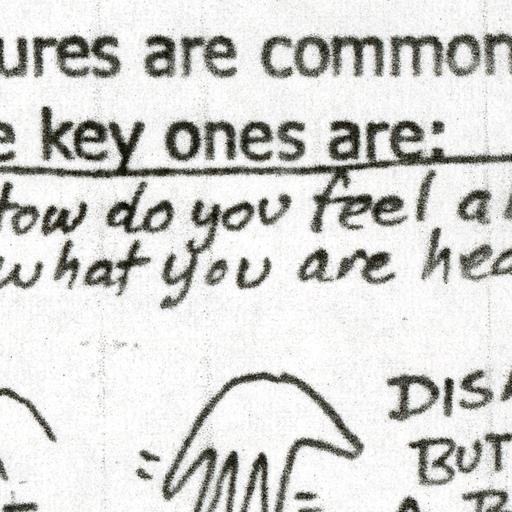 ures are common
e key ones are:
How do you feel a
what you are hea
DISA
BUT
A B